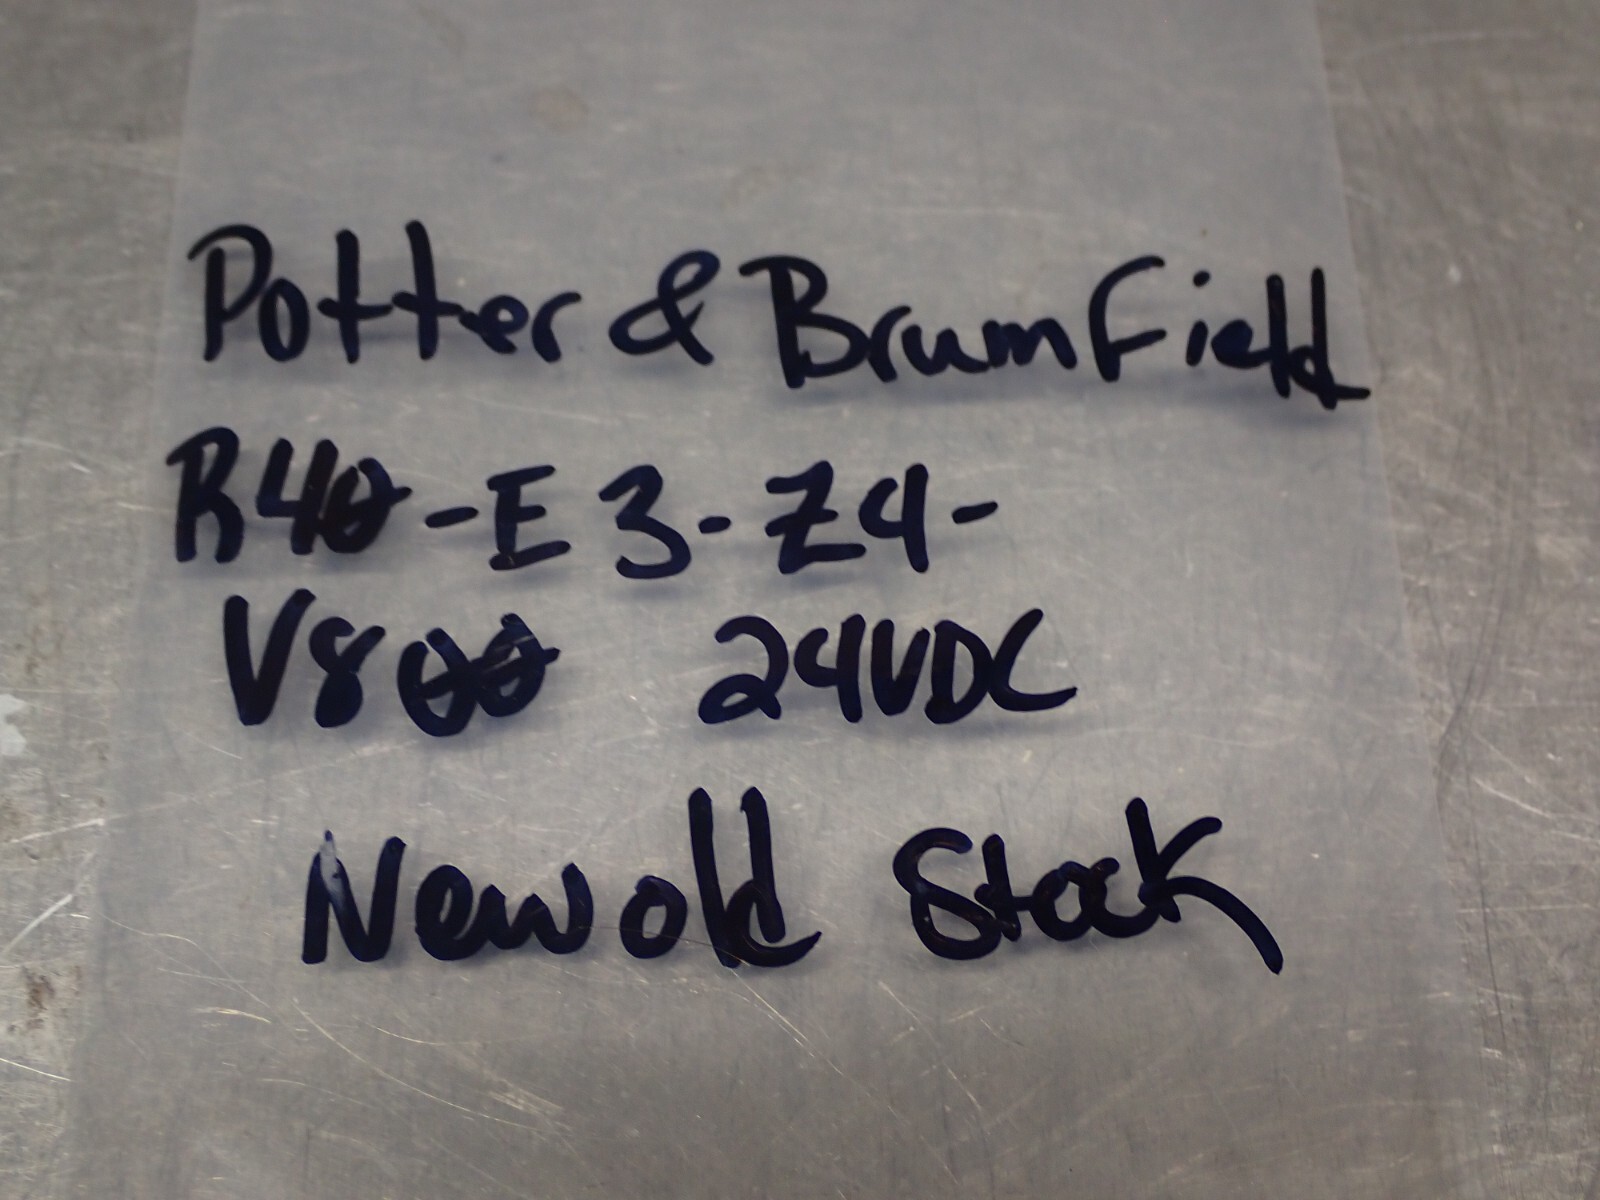 Potter & Brumfield
R40-E3-Z4-
V800 24VDC
New old Stock